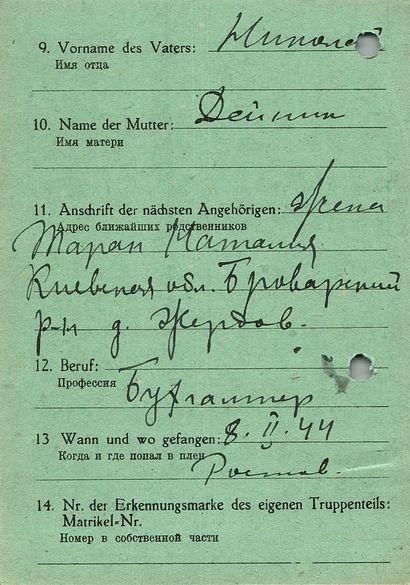 9. Vorname des Vaters: Николай
Имя отца
10. Name der Mutter: Дейнин
Имя матери
11. Anschrift der nächsten Angehörigen: жена
Адрес ближайших родственников
Таран Наталия
Киевская обл. Броварский
р-н д. Жердов.
12. Beruf:
Профессия
Бухгалтер
13 Wann und wo gefangen: 8. II. 44
Когда и где попал в плен
Ростов.
14. Nr. der Erkennungsmarke des eigenen Truppenteils:
Matrikel-Nr.
Номер в собственной части